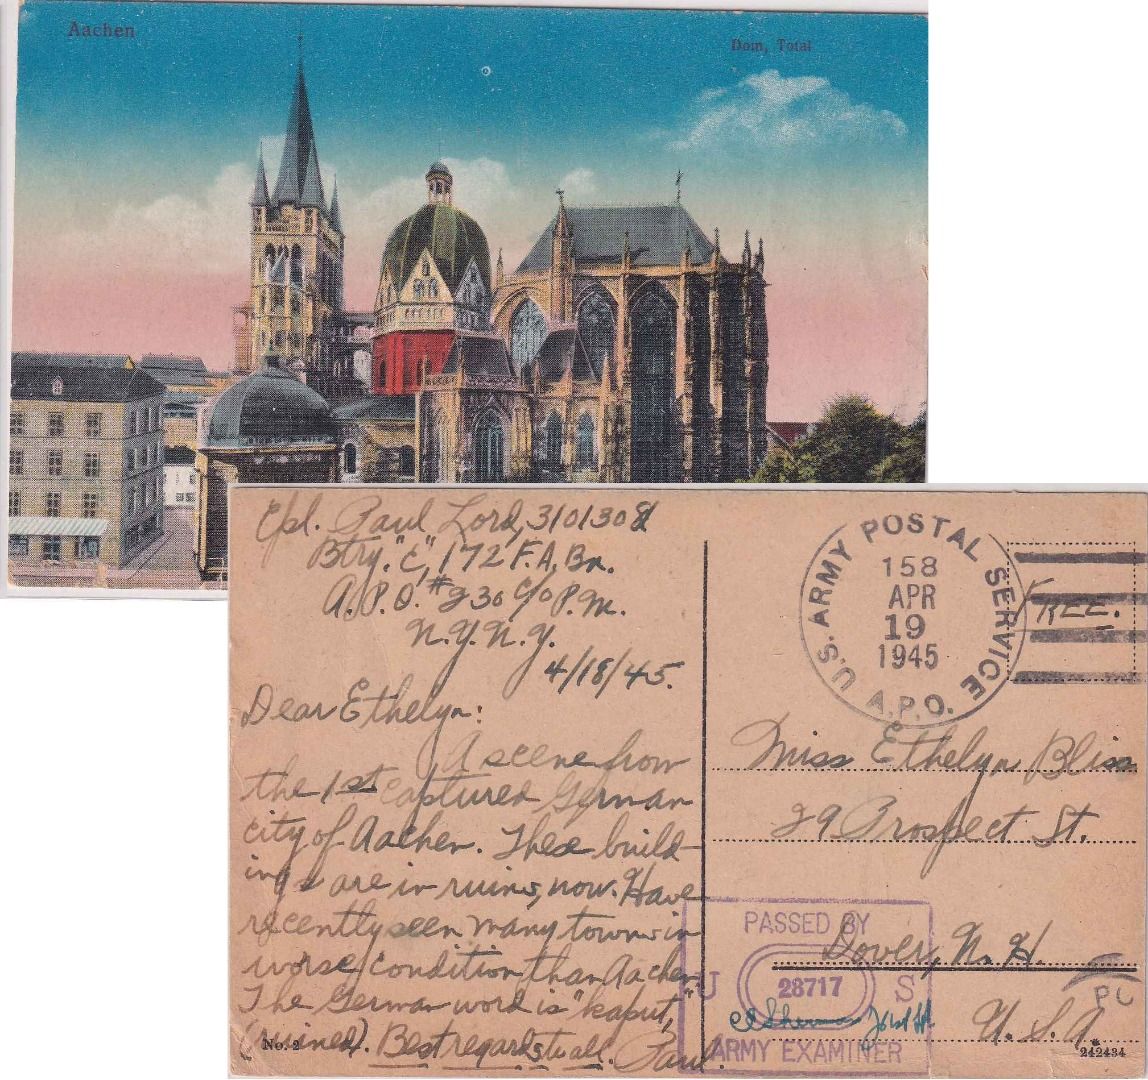 Aachen
Dom, Total
Cpl. Paul Lord, 31013081
Btry. "C", 172 F.A. Bn.
A.P.O. #230 c/o P.M.
N.Y. N.Y.
4/18/45.
Dear Ethelyn:
A scene from
the 1st captured German
city of Aachen. These build-
ings are in ruins, now. Have
recently seen many towns in
worse condition than Aachen.
The German word is "kaput,"
(ruined). Best regards to all. Paul.
No. 2
U.S. ARMY POSTAL SERVICE
158
APR
19
1945
A.P.O.
FREE.
Miss Ethelyn Bliss
29 Prospect St.
Dover, N. H.
U. S. A.
PASSED BY
U 28717 S
ARMY EXAMINER
PC
242434